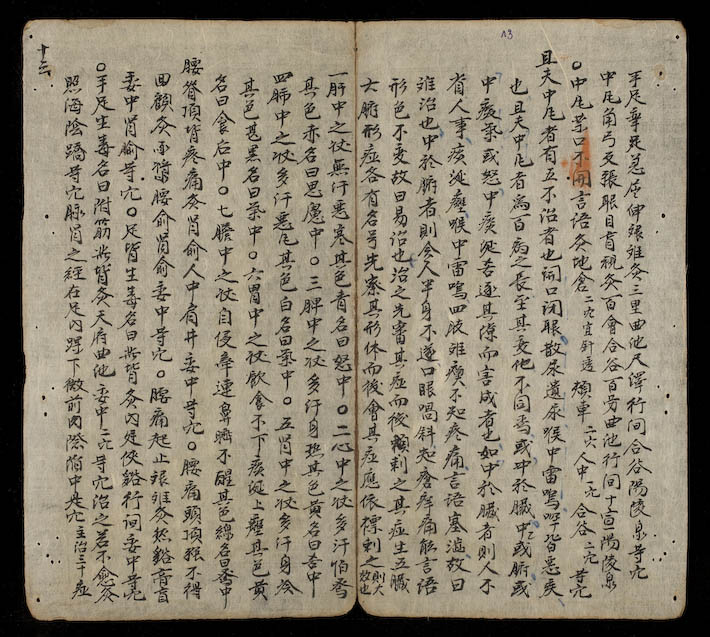 手足攣□□屈伸艱難灸三里曲池尺澤行间合谷陽陵泉等穴
中風角弓反張眼目盲視灸百會合谷百勞曲池行间十宣陽陵泉
○中風禁口不開言語灸地倉二穴宜針透頰車二穴人中一穴合谷二穴等穴
且夫中風者有五不治者也開口闭眼散尿遺尿喉中雷鳴□皆惡矣
也且夫中風者為百病之長至其变化不同焉或中於臟中或腑或
中痰氣或怒中痰涎□逐其隙而害成者也如中於臟者則人不
省人事痰涎壅喉中雷鳴四肢难□不知疼痛言語塞澁故曰
难治也中於腑者則令人半身不遂口眼喎斜知疼痒痛能言語
形色不变故曰易治也治之先審其症而後刺之其症生五臟
六腑形症各有名号先察其形体而後會其症應依標刺之則大效也
一肝中之状無汗悪寒其色青名曰怒中○二心中之状多汗怕驚
其色赤名曰思慮中○三脾中之状多汗身热其色黄名曰舌中
四肺中之状多汗悪風其色白名曰氣中○五肾中之状多汗身冷
其色甚黑名曰氣中○六胃中之状飲食不下痰涎上壅其色黄
名曰食后中○七膽中之状目侵牽連鼻□不醒其色緑名曰驚中
腰脊項背疼痛灸肾俞人中肩井委中等穴○腰痛頭項强不得
回顧灸承漿腰俞肾俞委中等穴○腰痛起止艱难灸然谿膏肓
委中肾俞等穴○足背生毒名曰□背灸内庭俠谿行间委中等穴
○手足生毒名曰附筋□背灸天府曲池委中二穴等穴治之若不愈灸
照海陰蹻等穴脉肾之經在足内踝下微前肉陰陷中是穴主治三十症
十三
13